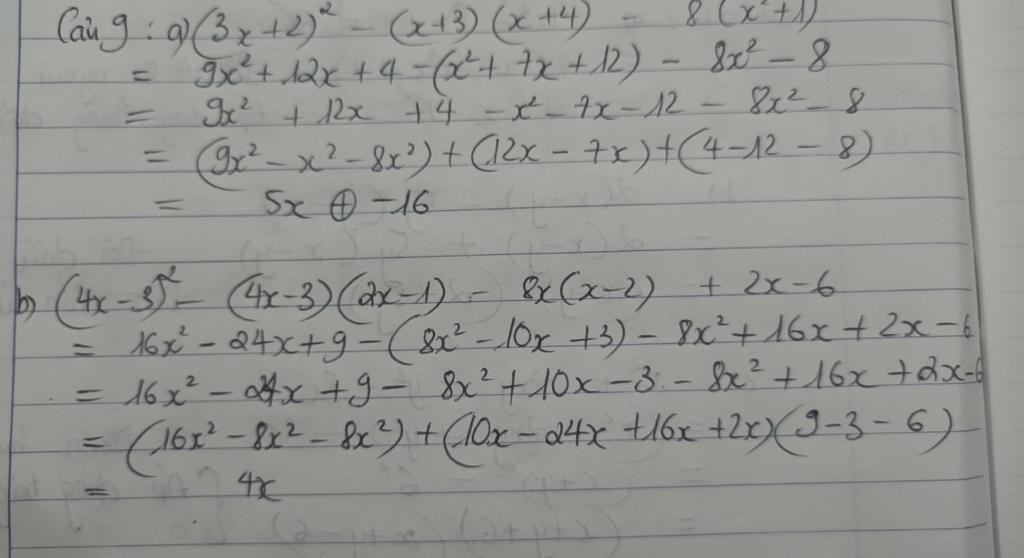 Câu 9 : a) (3x+2)² - (x+3)(x+4) - 8(x²+1)
= 9x² + 12x + 4 - (x² + 7x + 12) - 8x² - 8
= 9x² + 12x + 4 - x² - 7x - 12 - 8x² - 8
= (9x² - x² - 8x²) + (12x - 7x) + (4 - 12 - 8)
= 5x ⊕ -16
b) (4x-3)² - (4x-3)(2x-1) - 8x(x-2) + 2x - 6
= 16x² - 24x + 9 - (8x² - 10x + 3) - 8x² + 16x + 2x - 6
= 16x² - 24x + 9 - 8x² + 10x - 3 - 8x² + 16x + 2x - 6
= (16x² - 8x² - 8x²) + (10x - 24x + 16x + 2x)(9 - 3 - 6)
= 4x